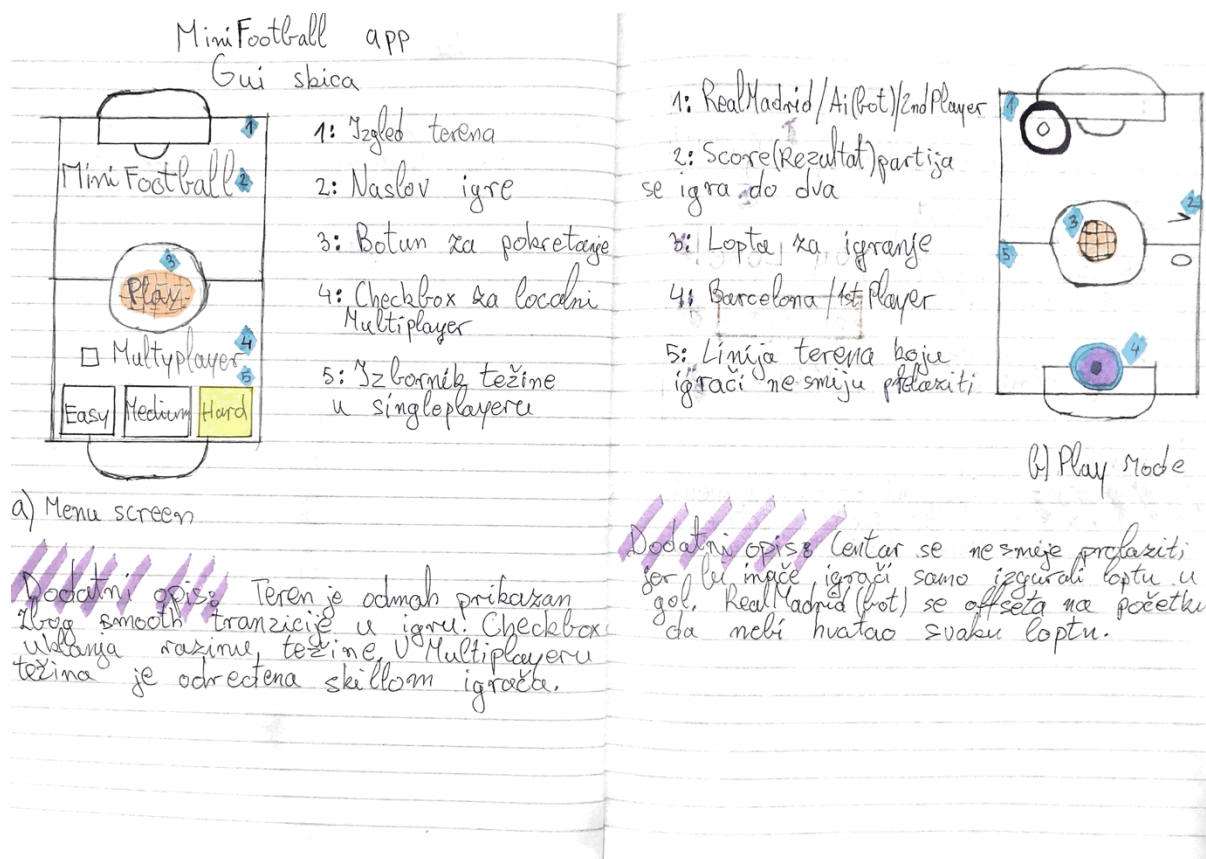 MiniFootball app
Gui skica
1
Mini Football 2
3
Play
4
Multyplayer
5
Easy Medium Hard
1: Izgled terena
2: Naslov igre
3: Botun za pokretanje
4: Checkbox za localni
Multiplayer
5: Izbornik težine
u singleplayeru
a) Menu screen
Dodatni opis: Teren je odmah prikazan
zbog smooth tranzicije u igru. Checkbox
uklanja razinu težine. U Multiplayeru
težina je određena skillom igrača.
1: RealMadrid/Ai(bot)/2ndPlayer
2: Score(Rezultat)partija
se igra do dva
3: Lopta za igranje
4: Barcelona/1st Player
5: Linija terena koju
igrači ne smiju prelaziti
1
2
3
5
0
4
b) Play Mode
Dodatni opis: Centar se ne smije prolaziti
jer bi inače igrači samo izgurali loptu u
gol. RealMadrid(bot) se offseta na početku
da nebi hvatao svaku loptu.